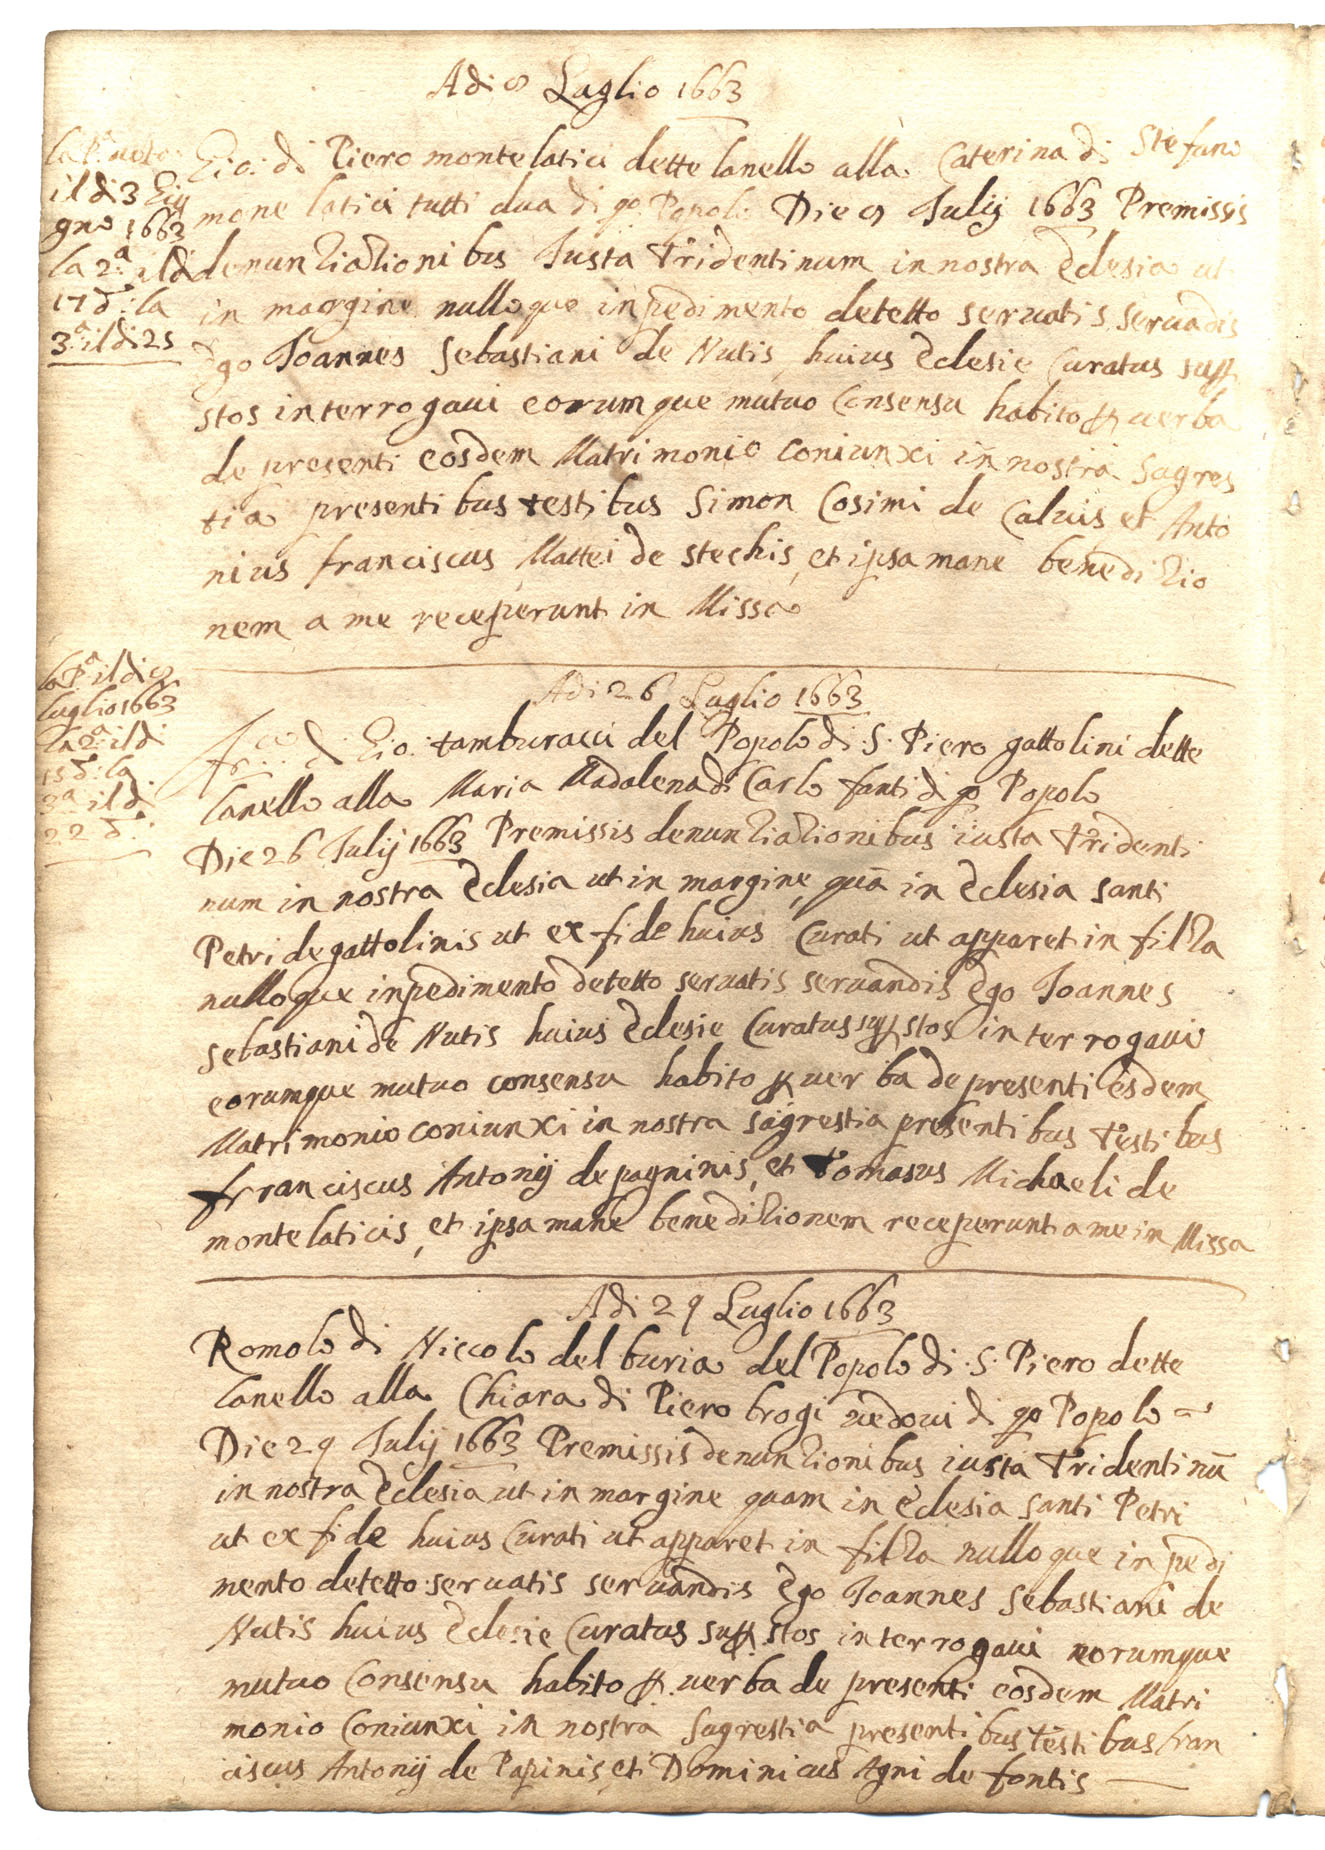 Adi 8 Luglio 1663
la Pᵃ uolta
il di 3 Giu
gno 1663
la 2ᵃ il di
17 d: la
3ᵃ il di 25
Gio: di Piero montelatici dette lanello alla Caterina di Stefano
monelatici tutti dua di qo Popolo Die 8 Julij 1663 Premissis
denuntiationibus Justa tridentinum in nostra Eclesia ut
in margine nulloque inpedimento detetto seruatis seruadis
Ego Joannes Sebastiani de Nutis huius Eclesie Curatus supp
stos interrogaui eorumque mutuo Consensu habito p uerba
de presenti eosdem Matrimonio coniunxi in nostra Sagres
tia presentibus testibus Simon Cosimi de Caluis et Anto
nius franciscus Mattei de stechis, et ipsa mane beneditio
nem a me receperunt in Missa
la Pᵃ il di 8
luglio 1663
la 2ᵃ il di
15 d: la
3ᵃ il di
22 d:
Adi 26 Luglio 1663
frco: di Gio: tamburacci del Popolo di S: Piero gattolini dette
lanello alla Maria Madalena di Carlo fanti di qo Popolo
Die 26 Julij 1663 Premissis denuntiationibus iusta tridenti
num in nostra Eclesia ut in margine, quā in Eclesia santi
Petri de gattolinis ut ex fide huius Curati ut apparet in filza
nulloque inpedimento detetto seruatis seruandis Ego Joannes
Sebastiani de Nutis huius Eclesie Curatus supp stos interrogaui
eorumque mutuo consensu habito p uerba de presenti esdem
Matrimonio coniunxi in nostra sagrestia presentibus testibus
franciscus Antonij de pagninis, et tomasus Michaeli de
montelaticis, et ipsa mane beneditionem receperunt a me in Missa
Adi 29 Luglio 1663
Romolo di Niccolo del buria del Popolo di S: Piero dette
lanello alla Chiara di Piero brogi uedoui di qo Popolo
Die 29 Julij 1663 Premissis denuntionibus iusta tridentinū
in nostra Eclesia ut in margine quam in Eclesia santi Petri
ut ex fide huius Curati ut apparet in filza nulloque inpedi
mento detetto seruatis seruandis Ego Joannes Sebastiani de
Nutis huius Eclesie Curatus supp stos interrogaui eorumque
mutuo Consensu habito p uerba de presenti eosdem Matri
monio Coniunxi in nostra Sagrestia presentibus testibus fran
ciscus Antonij de Papinis et Dominicus Agni de fontis